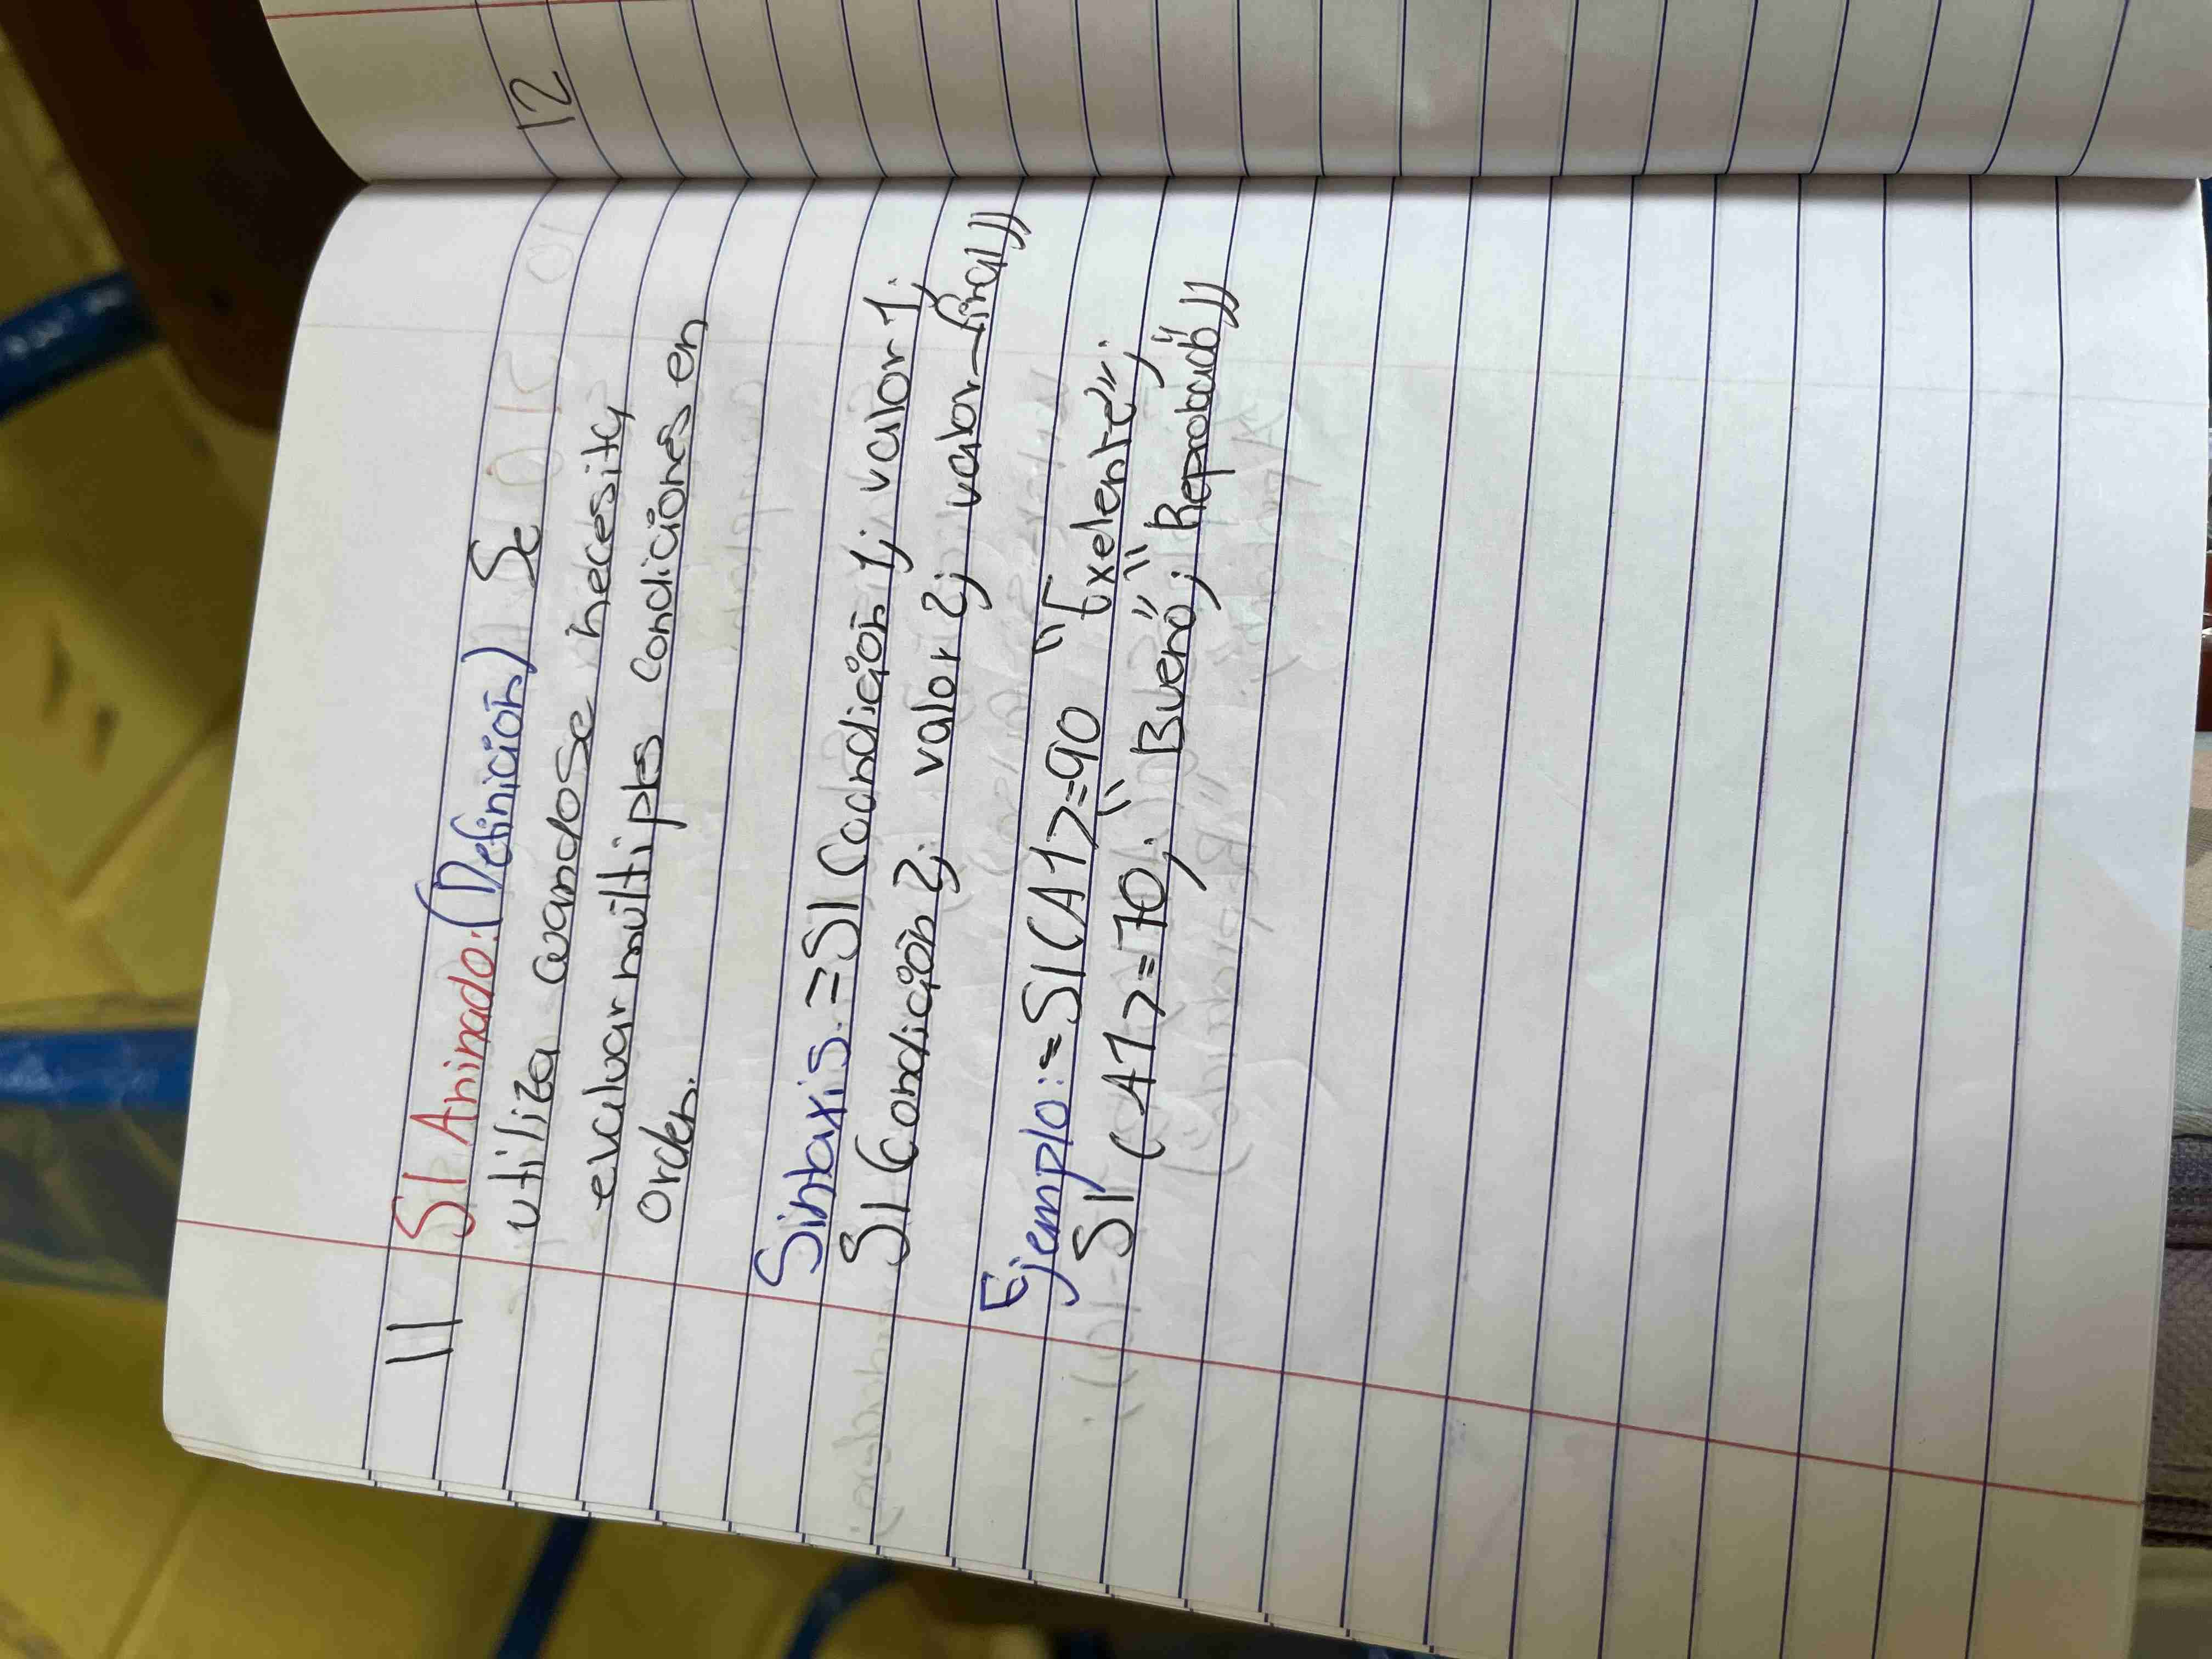 11 SI Aninado: (Definición) Se
utiliza cuando se necesita
evaluar múltiples condiciones en
orden.
Sintaxis: =SI(condición 1; valor 1;
SI(condición 2; valor 2; valor_final))
Ejemplo: =SI(A1>=90 "Exelente";
SI(A1>=70; "Bueno"; "Reprobado"))
12